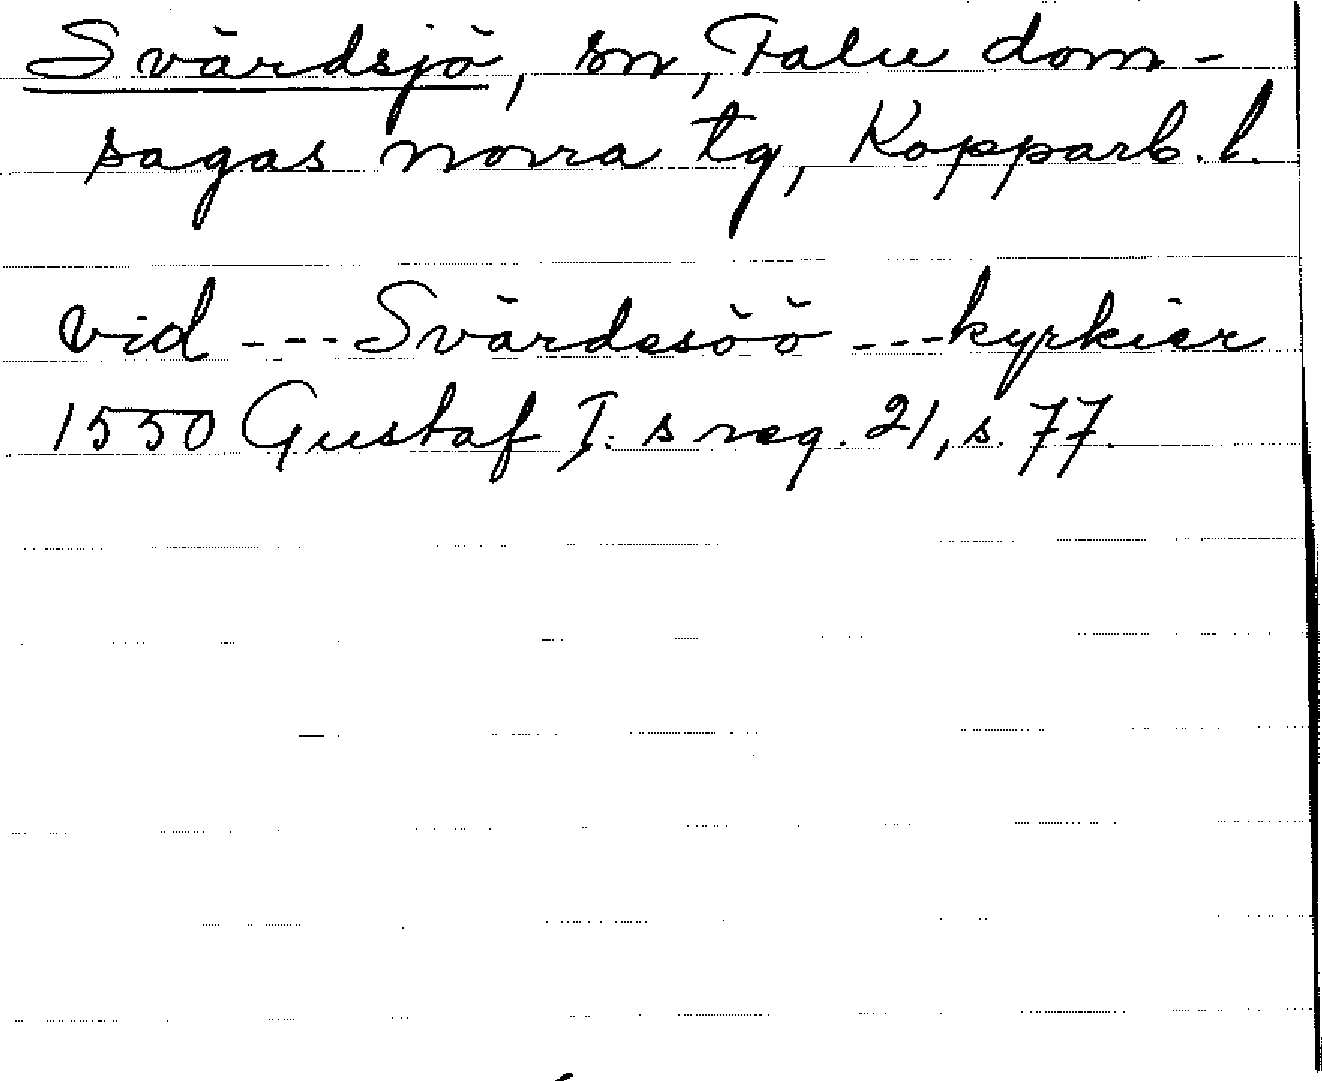 Svärdsjö, sn, Falu dom-
sagas norra tg, Kopparb. l.
vid --- Svärdesöö --- kyrkier
1550 Gustaf I:s reg. 21, s. 77.